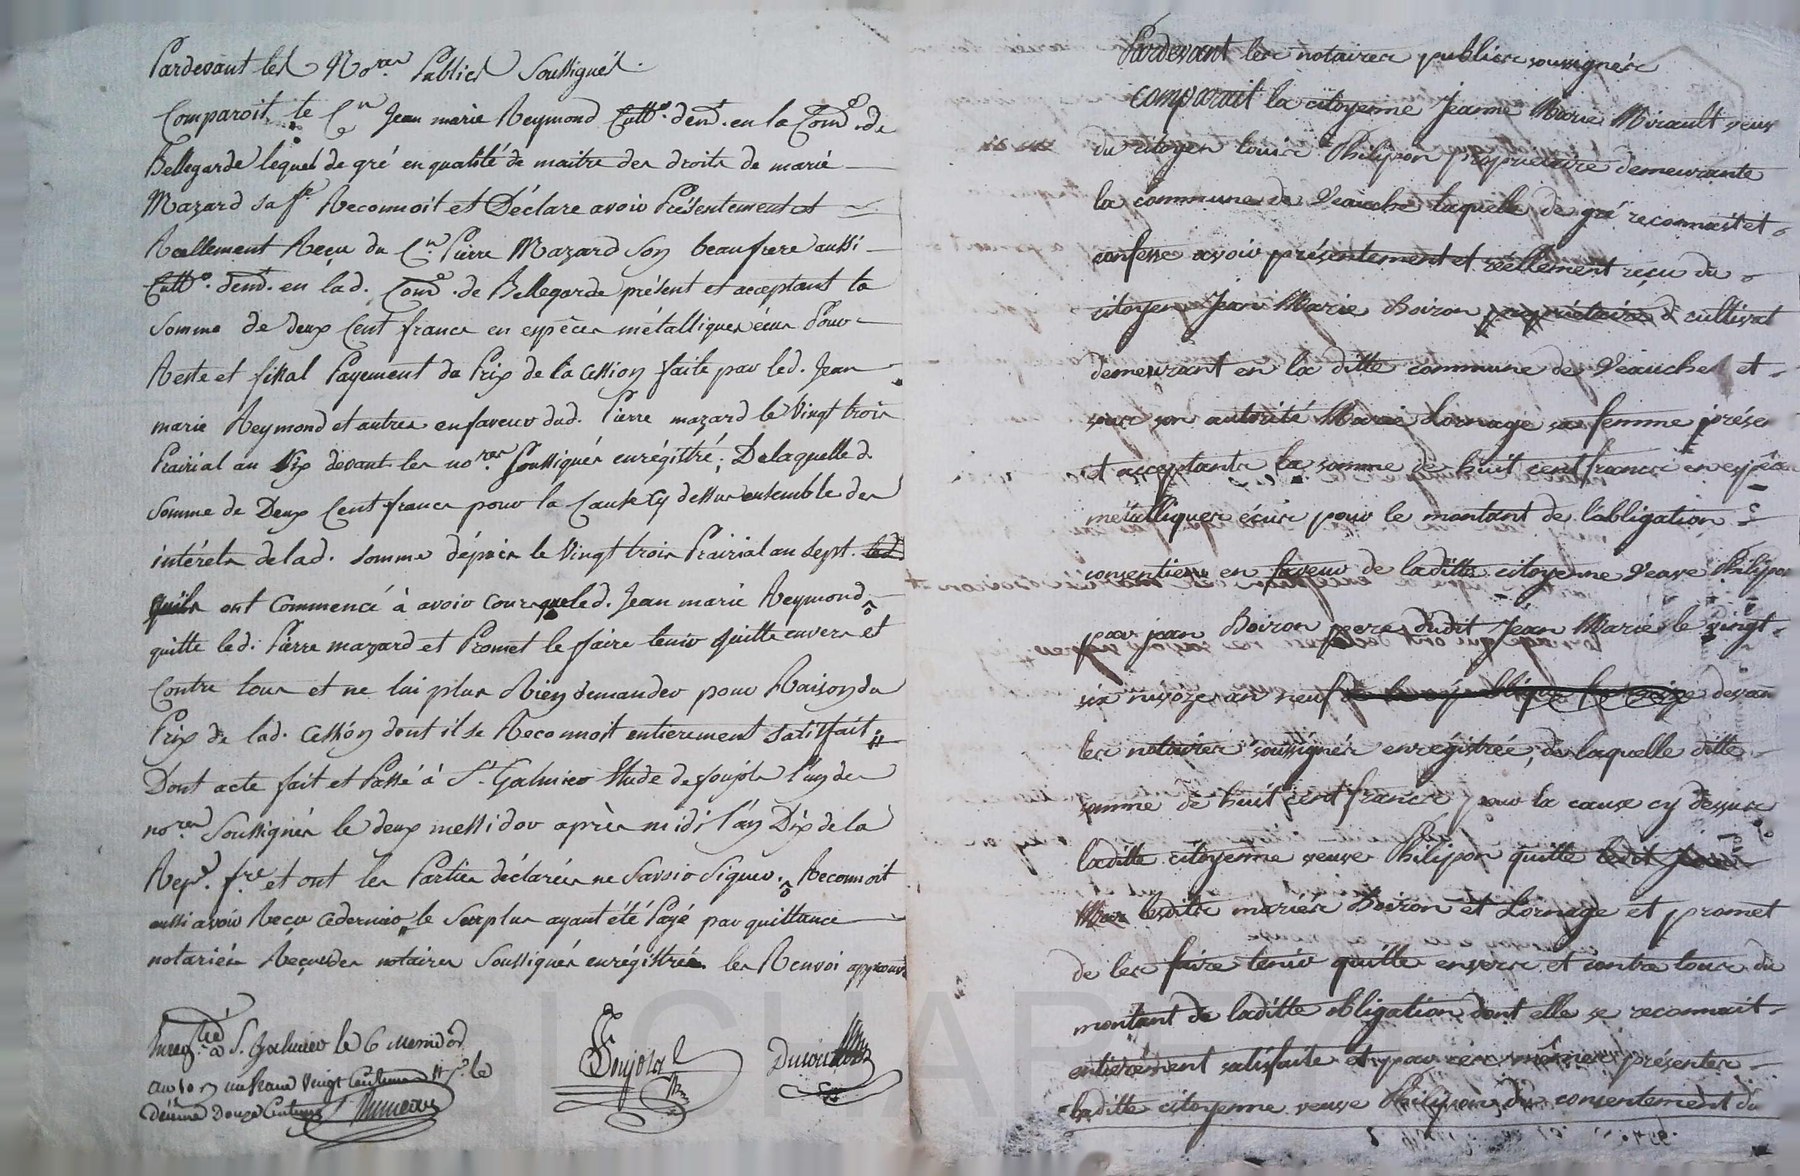 Pardevant les No.res Publics Soussignés.
Comparoit le C.en Jean marie Reymond Cult.r dem.t en la Com.e de
Bellegarde lequel de gré en qualité de maitre des droits de marie
Mazard sa f.e Reconnoit et Déclare avoir Présentement et
Reellement Reçu du C.n Pierre Mazard Son beaufrere aussi
Cult.r dem.t en lad. Com.e de Bellegarde présent et acceptant la
Somme de deux Cent francs en espèces métalliques écus Pour
Reste et final Payement du Prix de la Cession faite par led. Jean
marie Reymond et autres en faveur dud. Pierre mazard le Vingt trois
Prairial an Six devant les no.res Soussignés enrégistré; De laquelle d.
Somme de Deux Cent francs pour la Cause cy dessus ensemble des
intérêts de lad. somme dépuis le Vingt trois Prairial an sept
quils ont Commencé à avoir Cours que led. Jean marie Reymond
quitte led. Pierre mazard et Promet le faire tenir quitte envers et
Contre tous et ne lui plus Rien demander pour Raison du
Prix de lad. Cession dont il se Reconnoit entierement Satisfait;
Dont acte fait et Passé à S.t Galmier Etude de Soujols l'un des
no.res Soussignés le deux messidor après midi l'an Dix de la
Rep.e f.se et ont les Parties déclarées ne Savoir Signer. Reconnoit
aussi avoir Reçu ce dernier le Surplus ayant été Payé par quittance
notariés Reçues des notaires Soussignés enrégistrée les Renvoi approuvé
Soujols
Enreg.tré à S. Galmier le 6 Messidor
an 10 Reçu un franc Vingt Centimes
décime Douze Centimes
Pardevant les notaires publics soussignés
comparait la citoyenne Jeanne Marie Mirault veuve
du citoyen louis Philipon propriétaire demeurante
la commune de Veauche laquelle de gré reconnait et
confesse avoir présentement et réellement reçu du
citoyen Jean Marie Boiron propriétaire d cultivat
demeurant en la ditte commune de Veauche et
sous son autorité Marie Lornage sa femme présen
et acceptants la somme de huit cent francs en espèces
métalliques écus pour le montant de l'obligation
consentie en faveur de laditte citoyenne veuve Philipon
par jean Boiron pere dudit Jean Marie le vingt
six nivoze an neuf devant
les notaires soussignés enregistrée; de laquelle ditte
somme de huit cent francs pour la cause cy dessus
laditte citoyenne veuve Philipon quitte ledit Jean
Marie lesdits mariés Boiron et Lornage et promet
de les faire tenir quitte envers et contre tous du
montant de laditte obligation dont elle se reconnait
entièrement satisfaite et par ces mêmes présentes
laditte citoyenne veuve Philipon du consentement du